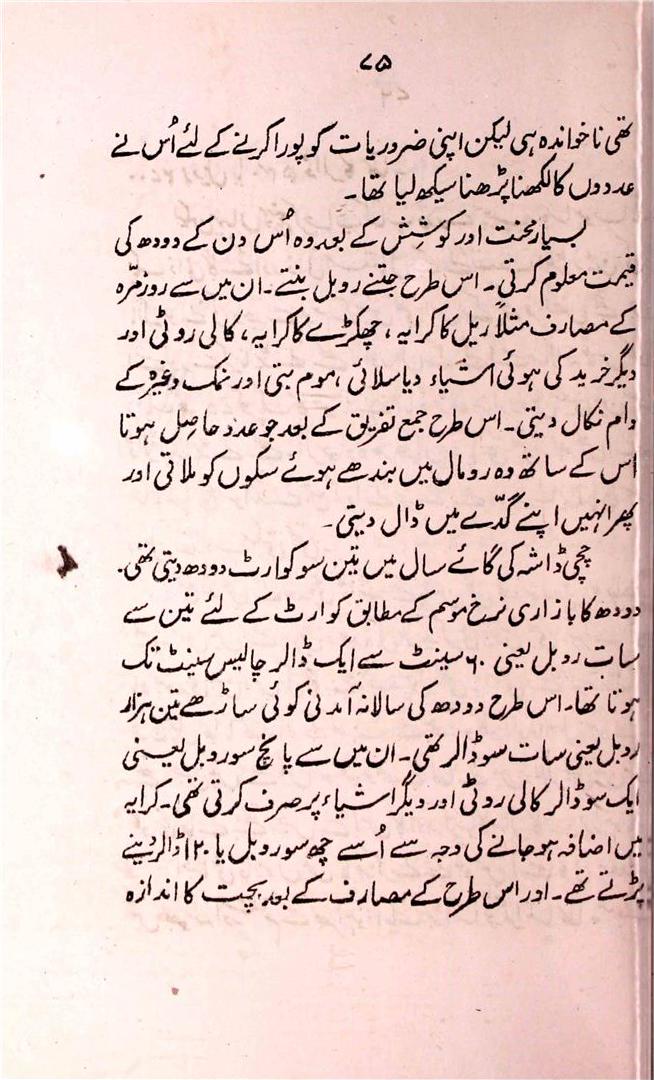 ۷۵
تھی ناخواندہ ہی لیکن اپنی ضروریات کو پورا کرنے کے لئے اُس نے
عددوں کا لکھنا پڑھنا سیکھ لیا تھا۔
بسیار محنت اور کوشش کے بعد وہ اُس دن کے دودھ کی
قیمت معلوم کرتی۔ اس طرح جتنے روبل بنتے۔ ان میں سے روزمرّہ
کے مصارف مثلاً ریل کا کرایہ، چھکڑے کا کرایہ، کالی روٹی اور
دیگر خرید کی ہوئی اشیاء دیا سلائی، موم بتی اور نمک وغیرہ کے
دام نکال دیتی۔ اس طرح جمع تفریق کے بعد جو عدد حاصل ہوتا
اس کے ساتھ وہ رومال میں بندھے ہوئے سکوں کو ملاتی اور
پھر انہیں اپنے گدّے میں ڈال دیتی۔
چچی ڈاشہ کی گائے سال میں تین سو کوارٹ دودھ دیتی تھی۔
دودھ کا بازاری نرخ موسم کے مطابق کوارٹ کے لئے تین سے
سات روبل یعنی ۶۰ سینٹ سے ایک ڈالر چالیس سینٹ تک
ہوتا تھا۔ اس طرح دودھ کی سالانہ آمدنی کوئی ساڑھے تین ہزار
روبل یعنی سات سو ڈالر تھی۔ ان میں سے پانچ سو روبل یعنی
ایک سو ڈالر کالی روٹی اور دیگر اشیاء پر صرف کرتی تھی۔ کرایہ
میں اضافہ ہو جانے کی وجہ سے اُسے چھ سو روبل یا ۱۲۰ ڈالر دینے
پڑتے تھے۔ اور اس طرح کے مصارف کے بعد بچت کا اندازہ